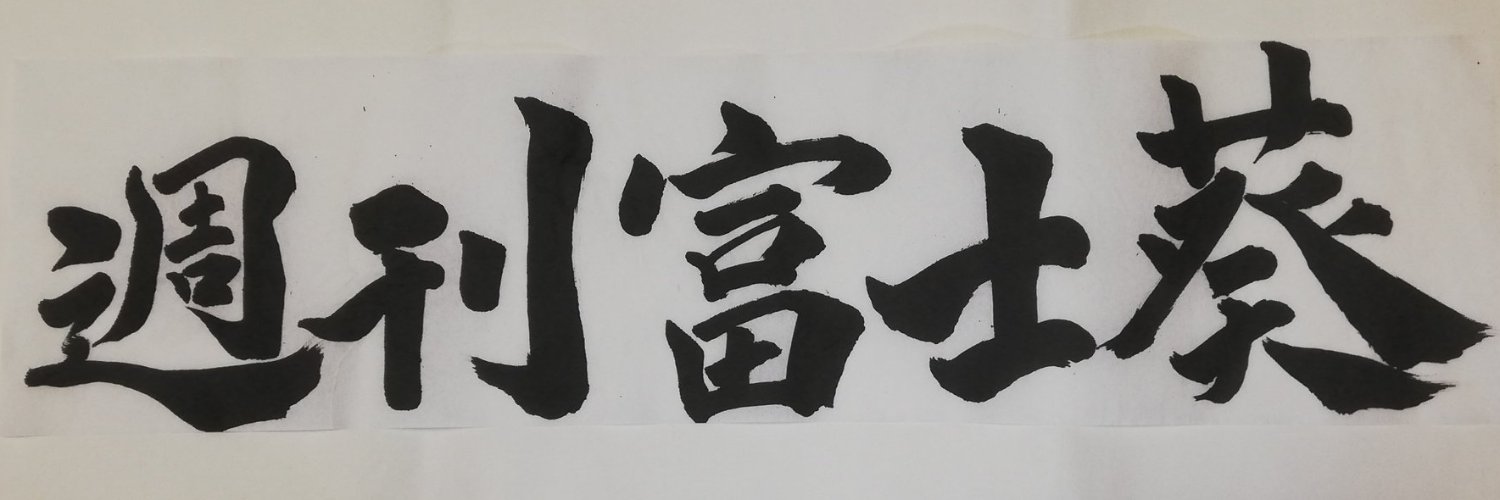 週刊富士葵